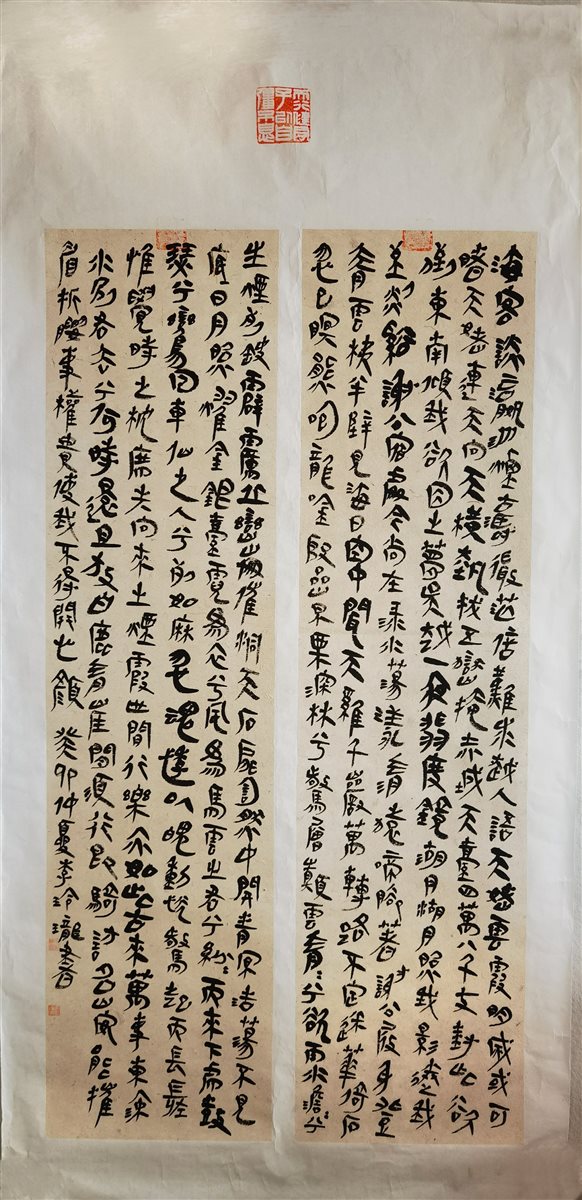 海客談瀛洲煙濤微茫信難求越人語天姥雲霞明滅或可
睹天姥連天向天橫勢拔五嶽掩赤城天臺四萬八千丈對此欲
倒東南傾我欲因之夢吳越一夜飛度鏡湖月湖月照我影送我
至剡谿謝公宿處今尚在淥水蕩漾清猿啼腳著謝公屐身登
青雲梯半壁見海日空中聞天雞千巖萬轉路不定迷花倚石
忽已暝熊咆龍吟殷巖泉栗深林兮驚層巔雲青青兮欲雨水澹澹兮
生煙列缺霹靂丘巒崩摧洞天石扉訇然中開青冥浩蕩不見
底日月照耀金銀臺霓為衣兮風為馬雲之君兮紛紛而來下虎鼓
瑟兮鸞回車仙之人兮列如麻忽魂悸以魄動恍驚起而長嗟
惟覺時之枕席失向來之煙霞世間行樂亦如此古來萬事東流
水別君去兮何時還且放白鹿青崖間須行即騎訪名山安能摧
眉折腰事權貴使我不得開心顏 癸卯仲夏李泠瓏書